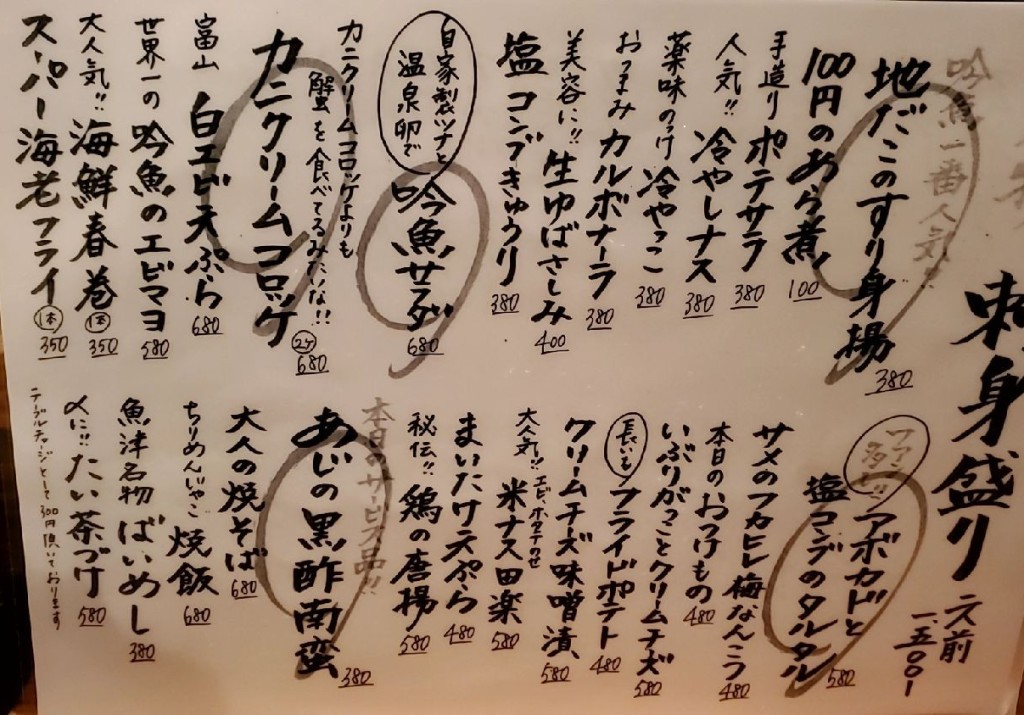 刺身盛り 二人前 一、五〇〇ー
吟魚一番人気!!
地だこのすり身揚 380
100円のあら煮 100
手造り ポテサラ 380
人気!! 冷やしナス 380
薬味のっけ 冷やっこ 380
おつまみ カルボナーラ 380
美容に!! 生ゆばさしみ 400
塩コンブきゅうり 380
自家製ツナと
温泉卵で
吟魚サラダ 680
カニクリームコロッケよりも
蟹を食べてるみたいな!!
カニクリームコロッケ 2ケ 680
富山 白エビ天ぷら 680
世界一の吟魚のエビマヨ 580
大人気!! 海鮮春巻 1本 350
スーパー海老フライ 1本 350
ファン
アボカドと
塩コンブのタルタル 580
サメのフカヒレ梅なんこつ 480
本日のおつけもの 480
いぶりがっことクリームチーズ 580
長いもフライドポテト 480
クリームチーズ味噌漬 580
大人気!! エビホタテのせ
米ナス田楽 580
まいたけ天ぷら 480
秘伝!! 鶏の唐揚 580
本日のサービス品!!
あじの黒酢南蛮 380
大人の焼そば 680
ちりめんじゃこ 焼飯 680
魚津名物 ばいめし 380
〆に!! たい茶づけ 580
テーブルチャージとして300円頂いております